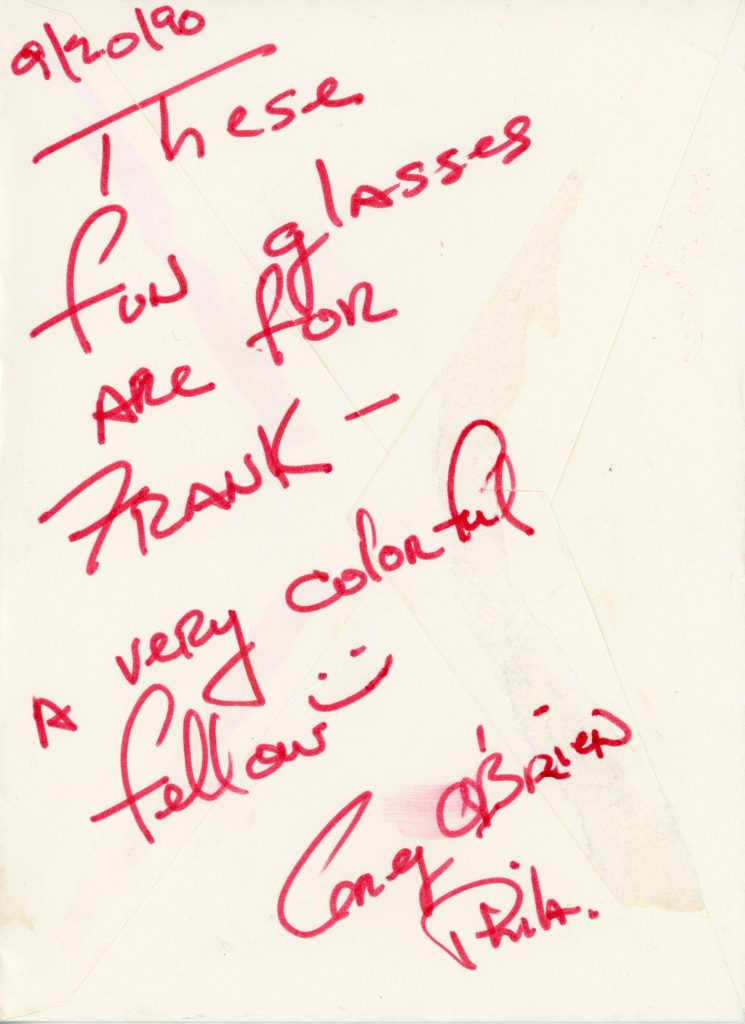 9/20/90
These
fun glasses
ARe for
FRANK —
A very colorful
fellow
O'BRIEN
Phila.